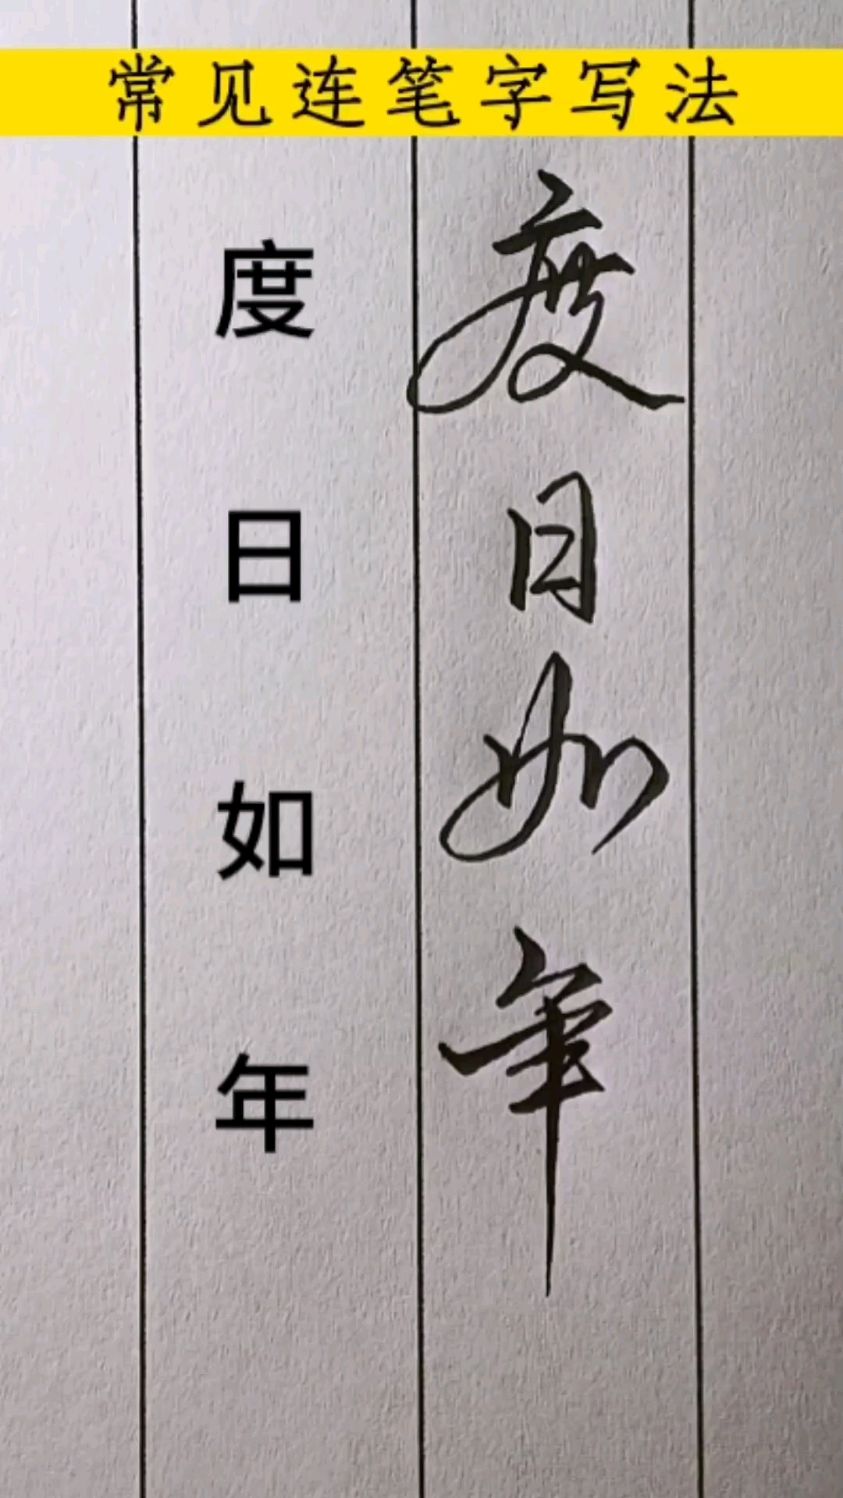 常见连笔字写法
度日如年
度日如年